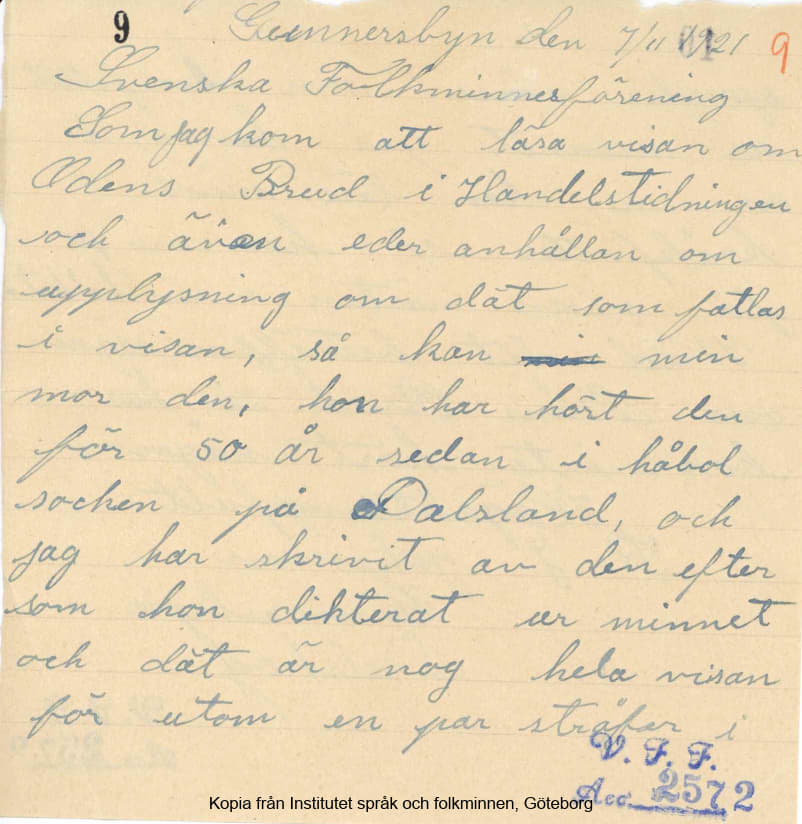 9
Gunnersbyn den 7/11 1921 9
Svenska Folkminnesförening
Som jag kom att läsa visan om
Odens Brud i Handelstidningen
och även eder anhållan om
upplysning om dät som fatlas
i visan, så kan min
mor den, hon har hört den
för 50 år sedan i håbol
socken på Dalsland, och
jag har skrivit av den efter
som hon dikterat ur minnet
och dät är nog hela visan
för utom en par stråfer i
V. F. F.
Acc. 2572
Kopia från Institutet språk och folkminnen, Göteborg